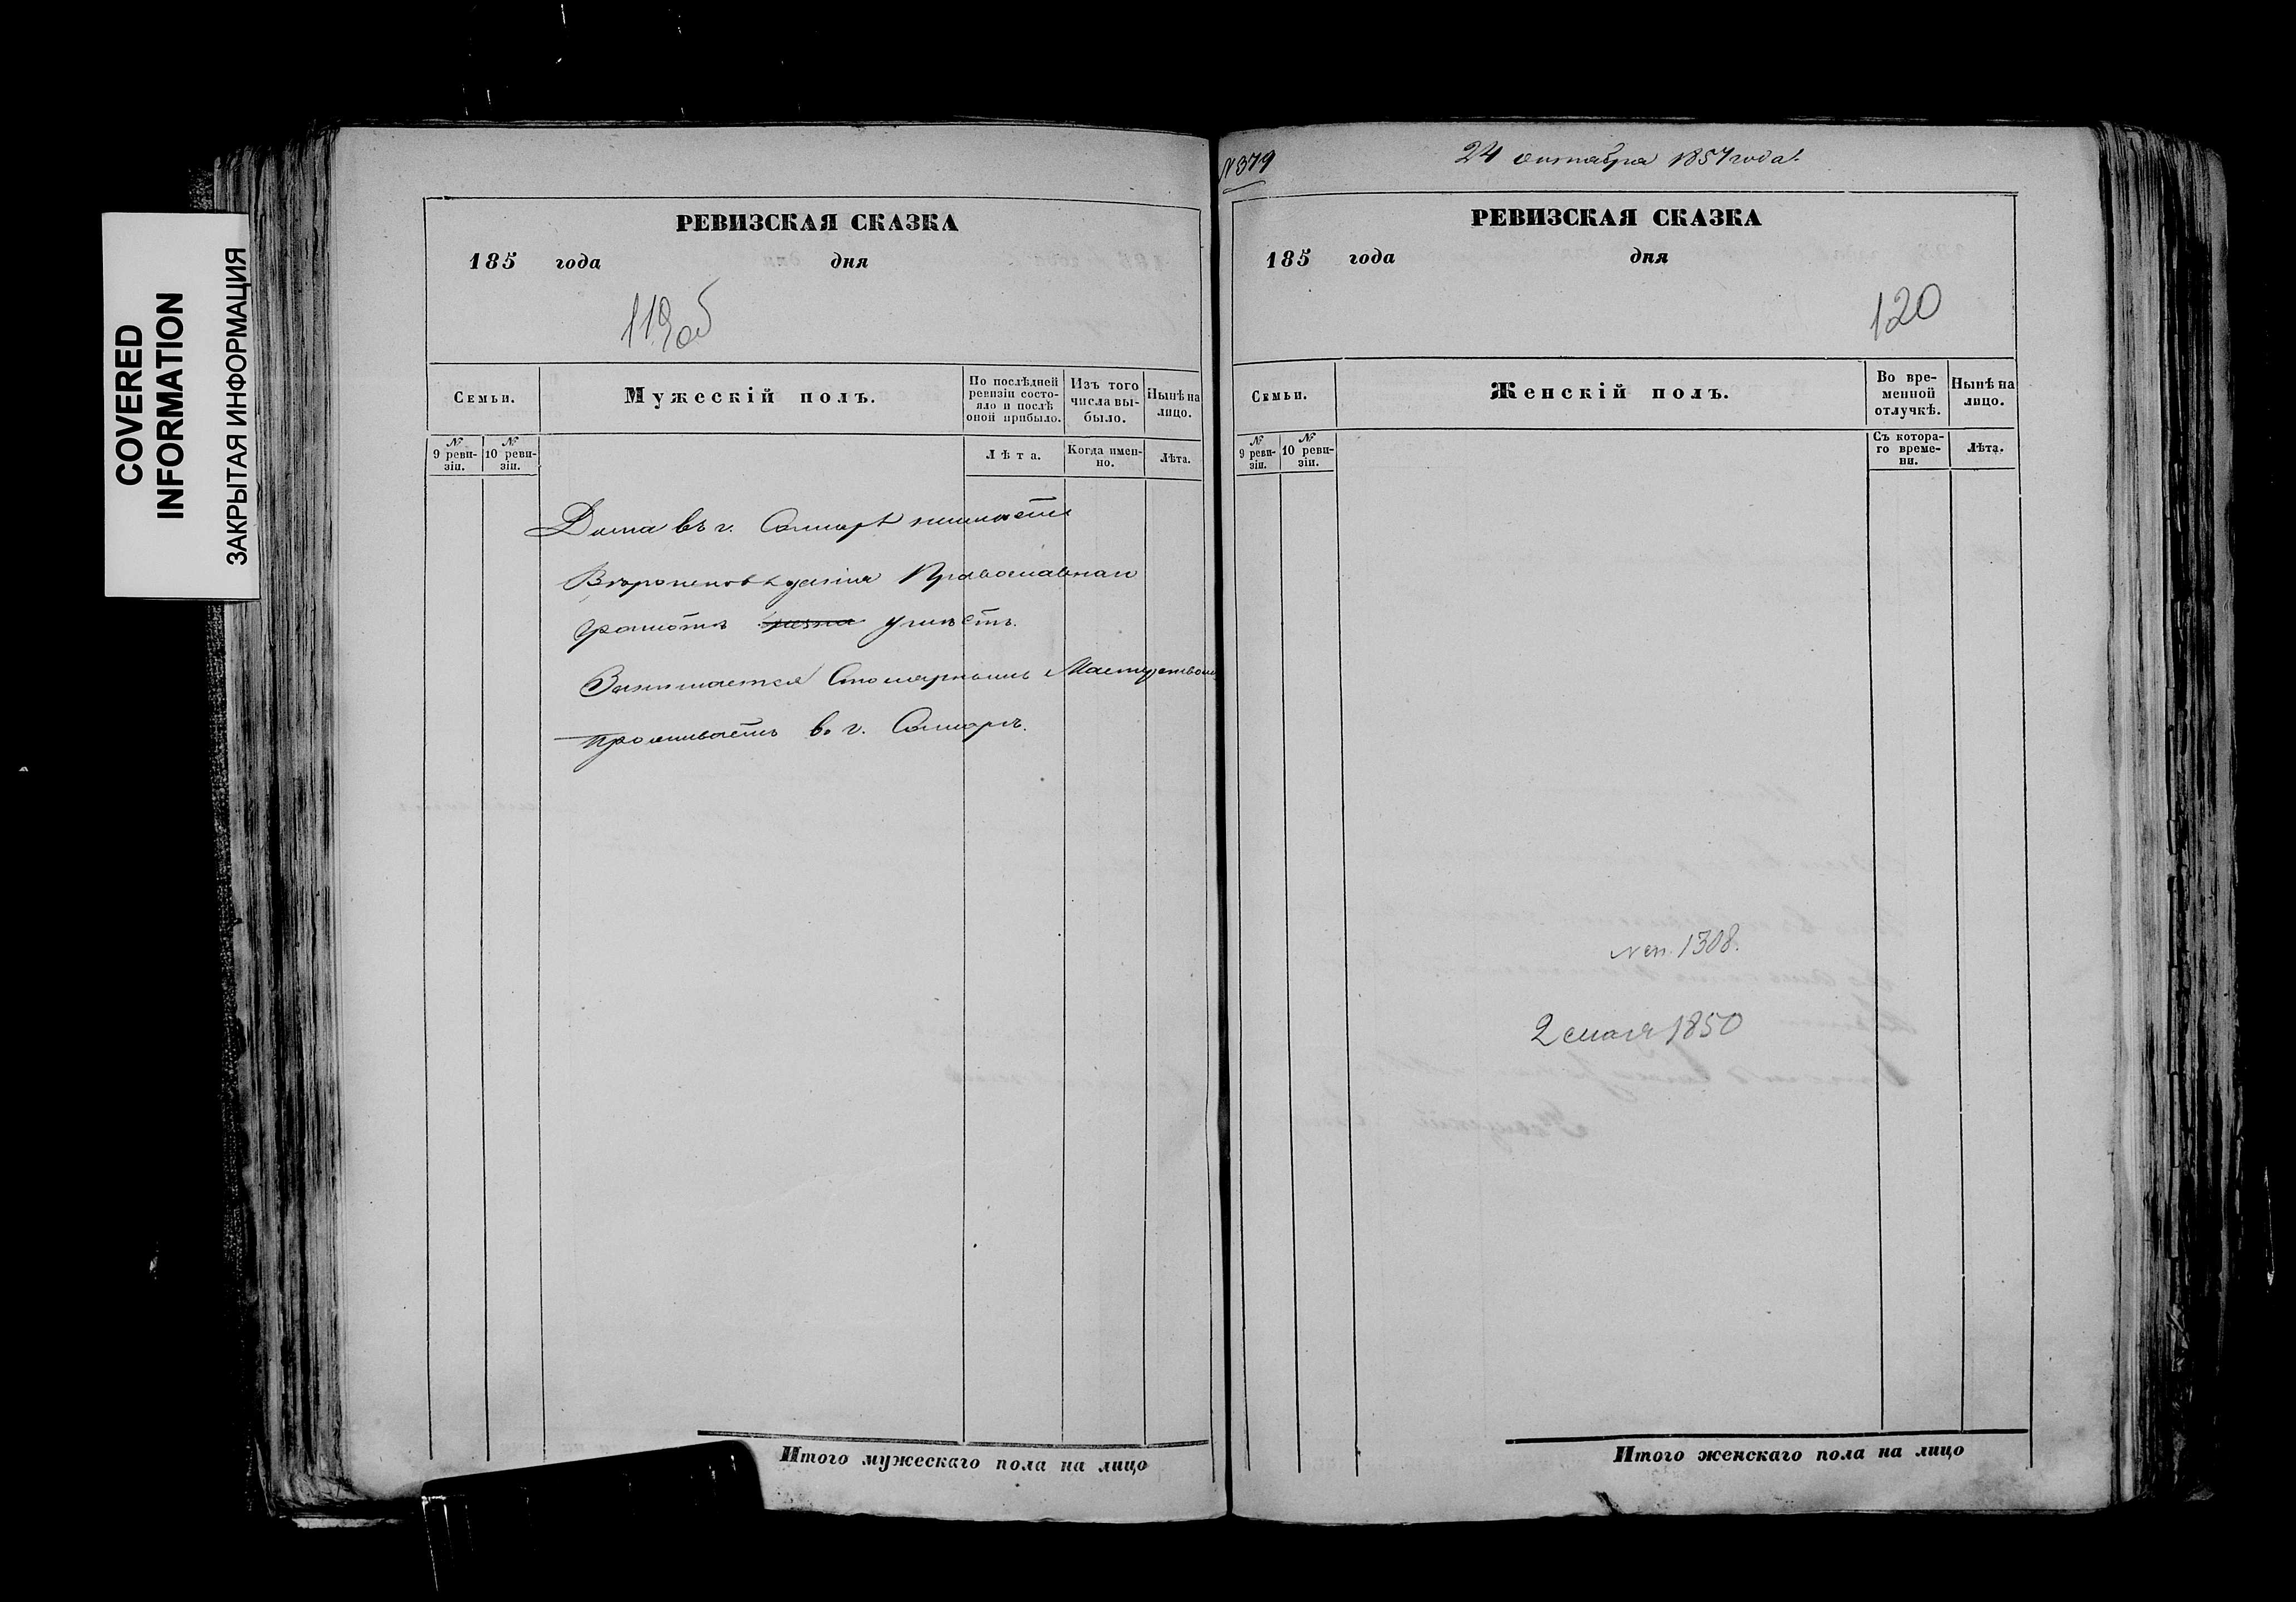 COVERED
INFORMATION
ЗАКРЫТАЯ ИНФОРМАЦИЯ
РЕВИЗСКАЯ СКАЗКА
185 года дня
119об
Семьи.
Мужескій полъ.
По послѣдней ревизіи состояло и послѣ оной прибыло.
Изъ того числа выбыло.
Нынѣ на лицо.
№ 9 ревизіи.
№ 10 ревизіи.
Лѣта.
Когда именно.
Лѣта.
Дома въ г. Самарѣ неимѣетъ
Вѣроисповѣданія Православнаго
Грамотѣ умѣетъ.
Занимается Столярнымъ Мастерствомъ
проживаетъ въ г. Самарѣ.
Итого мужескаго пола на лицо
№379
24 октября 1857 года.
РЕВИЗСКАЯ СКАЗКА
185 года дня
120
Семьи.
Женскій полъ.
Во временной отлучкѣ.
Нынѣ на лицо.
№ 9 ревизіи.
№ 10 ревизіи.
Съ котораго времени.
Лѣта.
1308.
2 мая 1850
Итого женскаго пола на лицо